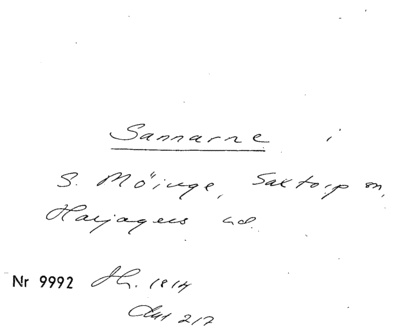 Sannarne i
S. Möinge, Saxtorp sn,
Harjagers hd.
Nr 9992 Jh. 1814
Akt 217